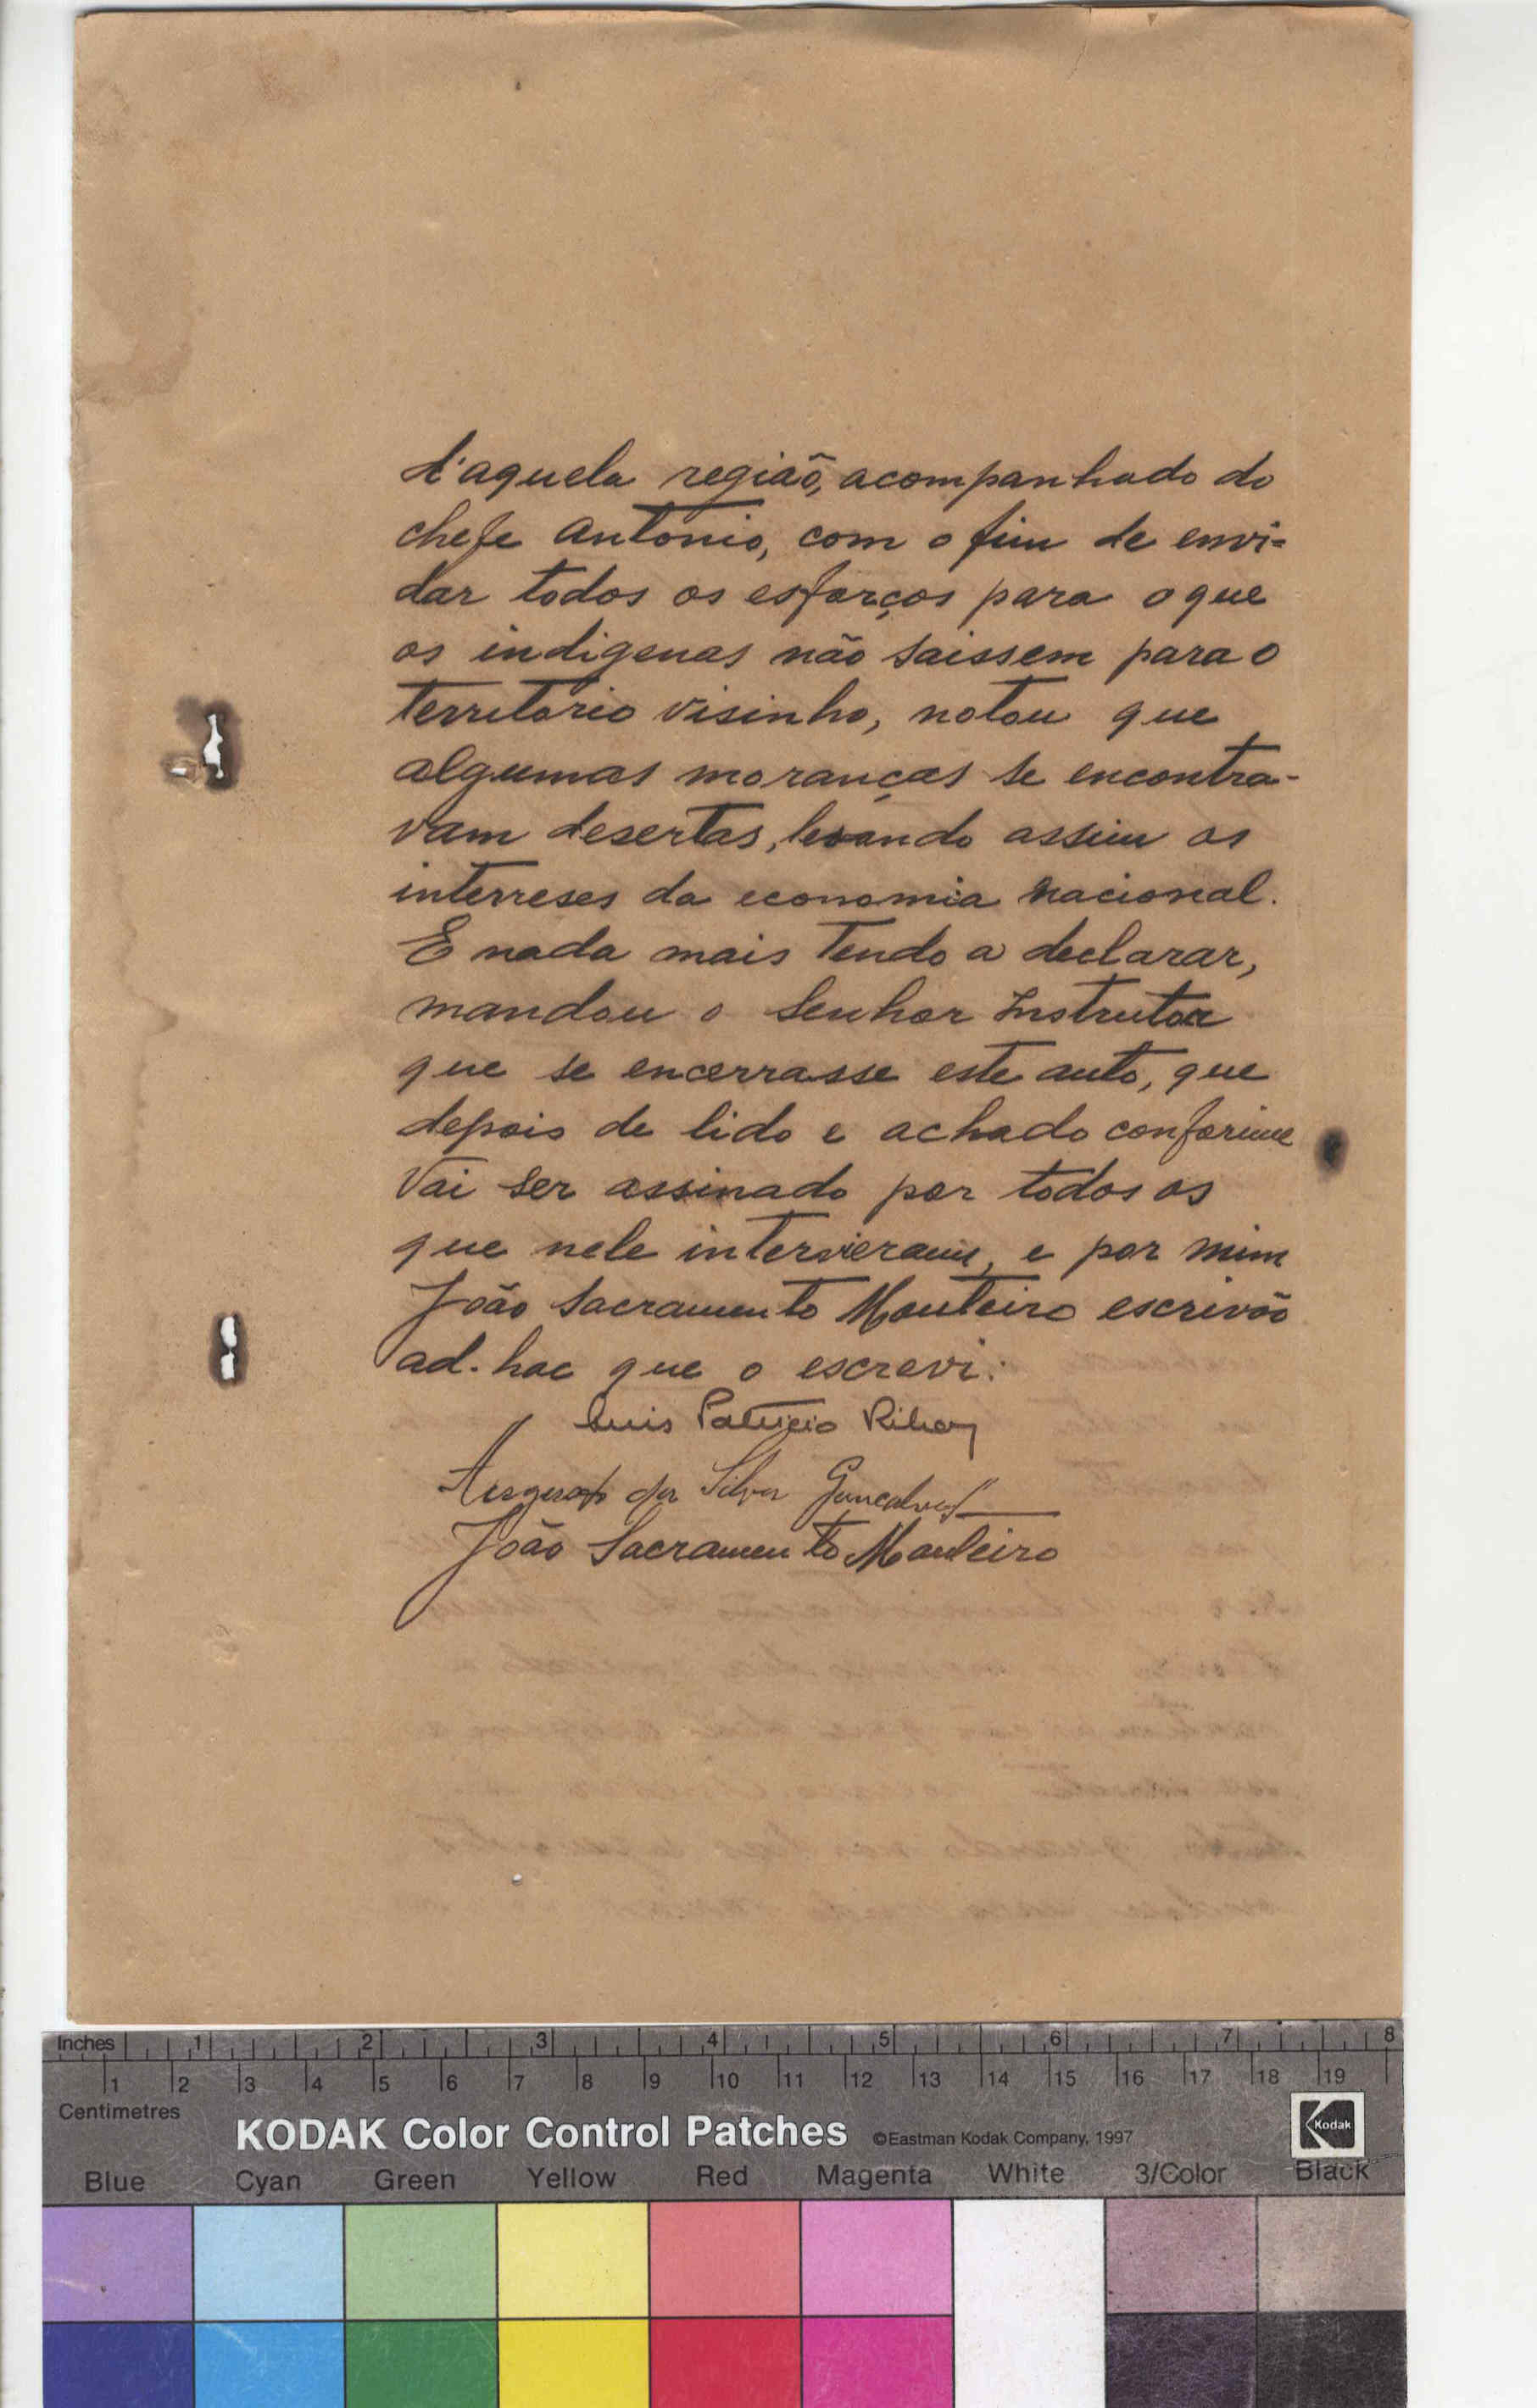 d'aquela região, acompanhado do
chefe Antonio, com o fim de envi-
dar todos os esforços para o que
os indigenas não saissem para o
territorio visinho, notou que
algumas moranças se encontra-
vam desertas, lesando assim os
interreses da economia nacional.
E nada mais tendo a declarar,
mandou o Senhor Instrutor
que se encerrasse este auto, que
depois de lido e achado conforime
vai ser assinado por todos os
que nele intervieram, e por mim
João Sacramento Monteiro escrivão
ad-hoc que o escrevi:
Luis Patricio
da Silva Gonçalves
João Sacramento Monteiro
Inches 1 2 3 4 5 6 7 8
1 2 3 4 5 6 7 8 9 10 11 12 13 14 15 16 17 18 19
Centimetres
KODAK Color Control Patches ©Eastman Kodak Company, 1997 Kodak
Blue Cyan Green Yellow Red Magenta White 3/Color Black